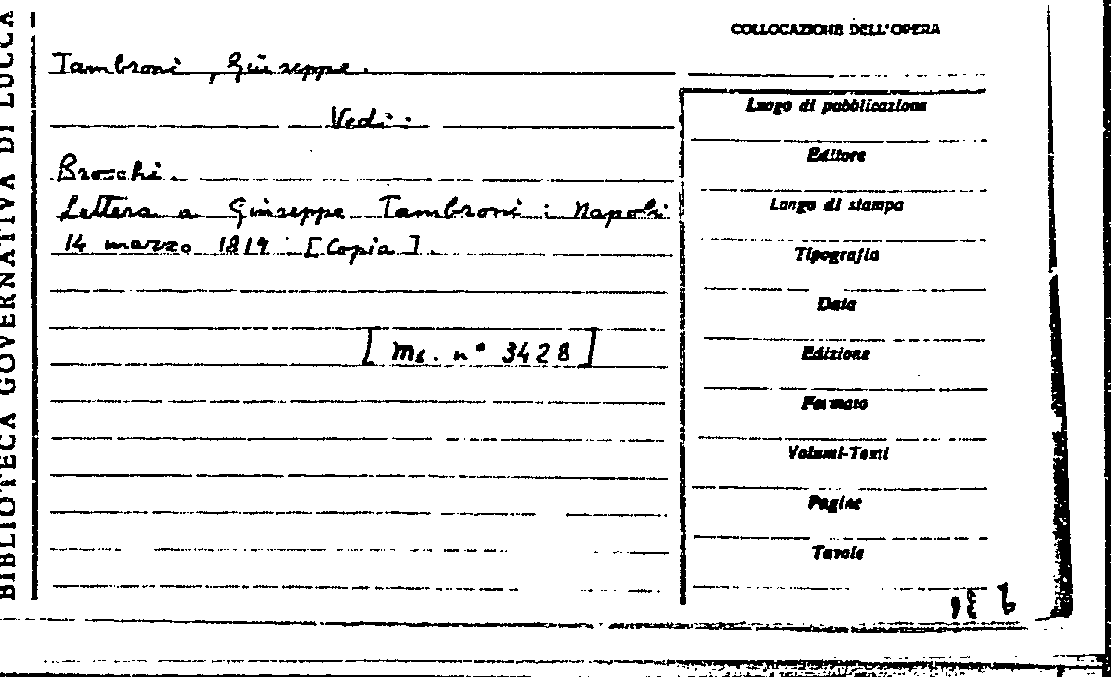 BIBLIOTECA GOVERNATIVA DI LUCCA
COLLOCAZIONE DELL'OPERA
Tambroni, Giuseppe.
Vedi:
Brocchi.
Lettera a Giuseppe Tambroni: Napoli
14 marzo 1819 [Copia].
[Ms. n° 3428]
Luogo di pubblicazione
Editore
Luogo di stampa
Tipografia
Data
Edizione
Formato
Volumi-Tomi
Pagine
Tavole